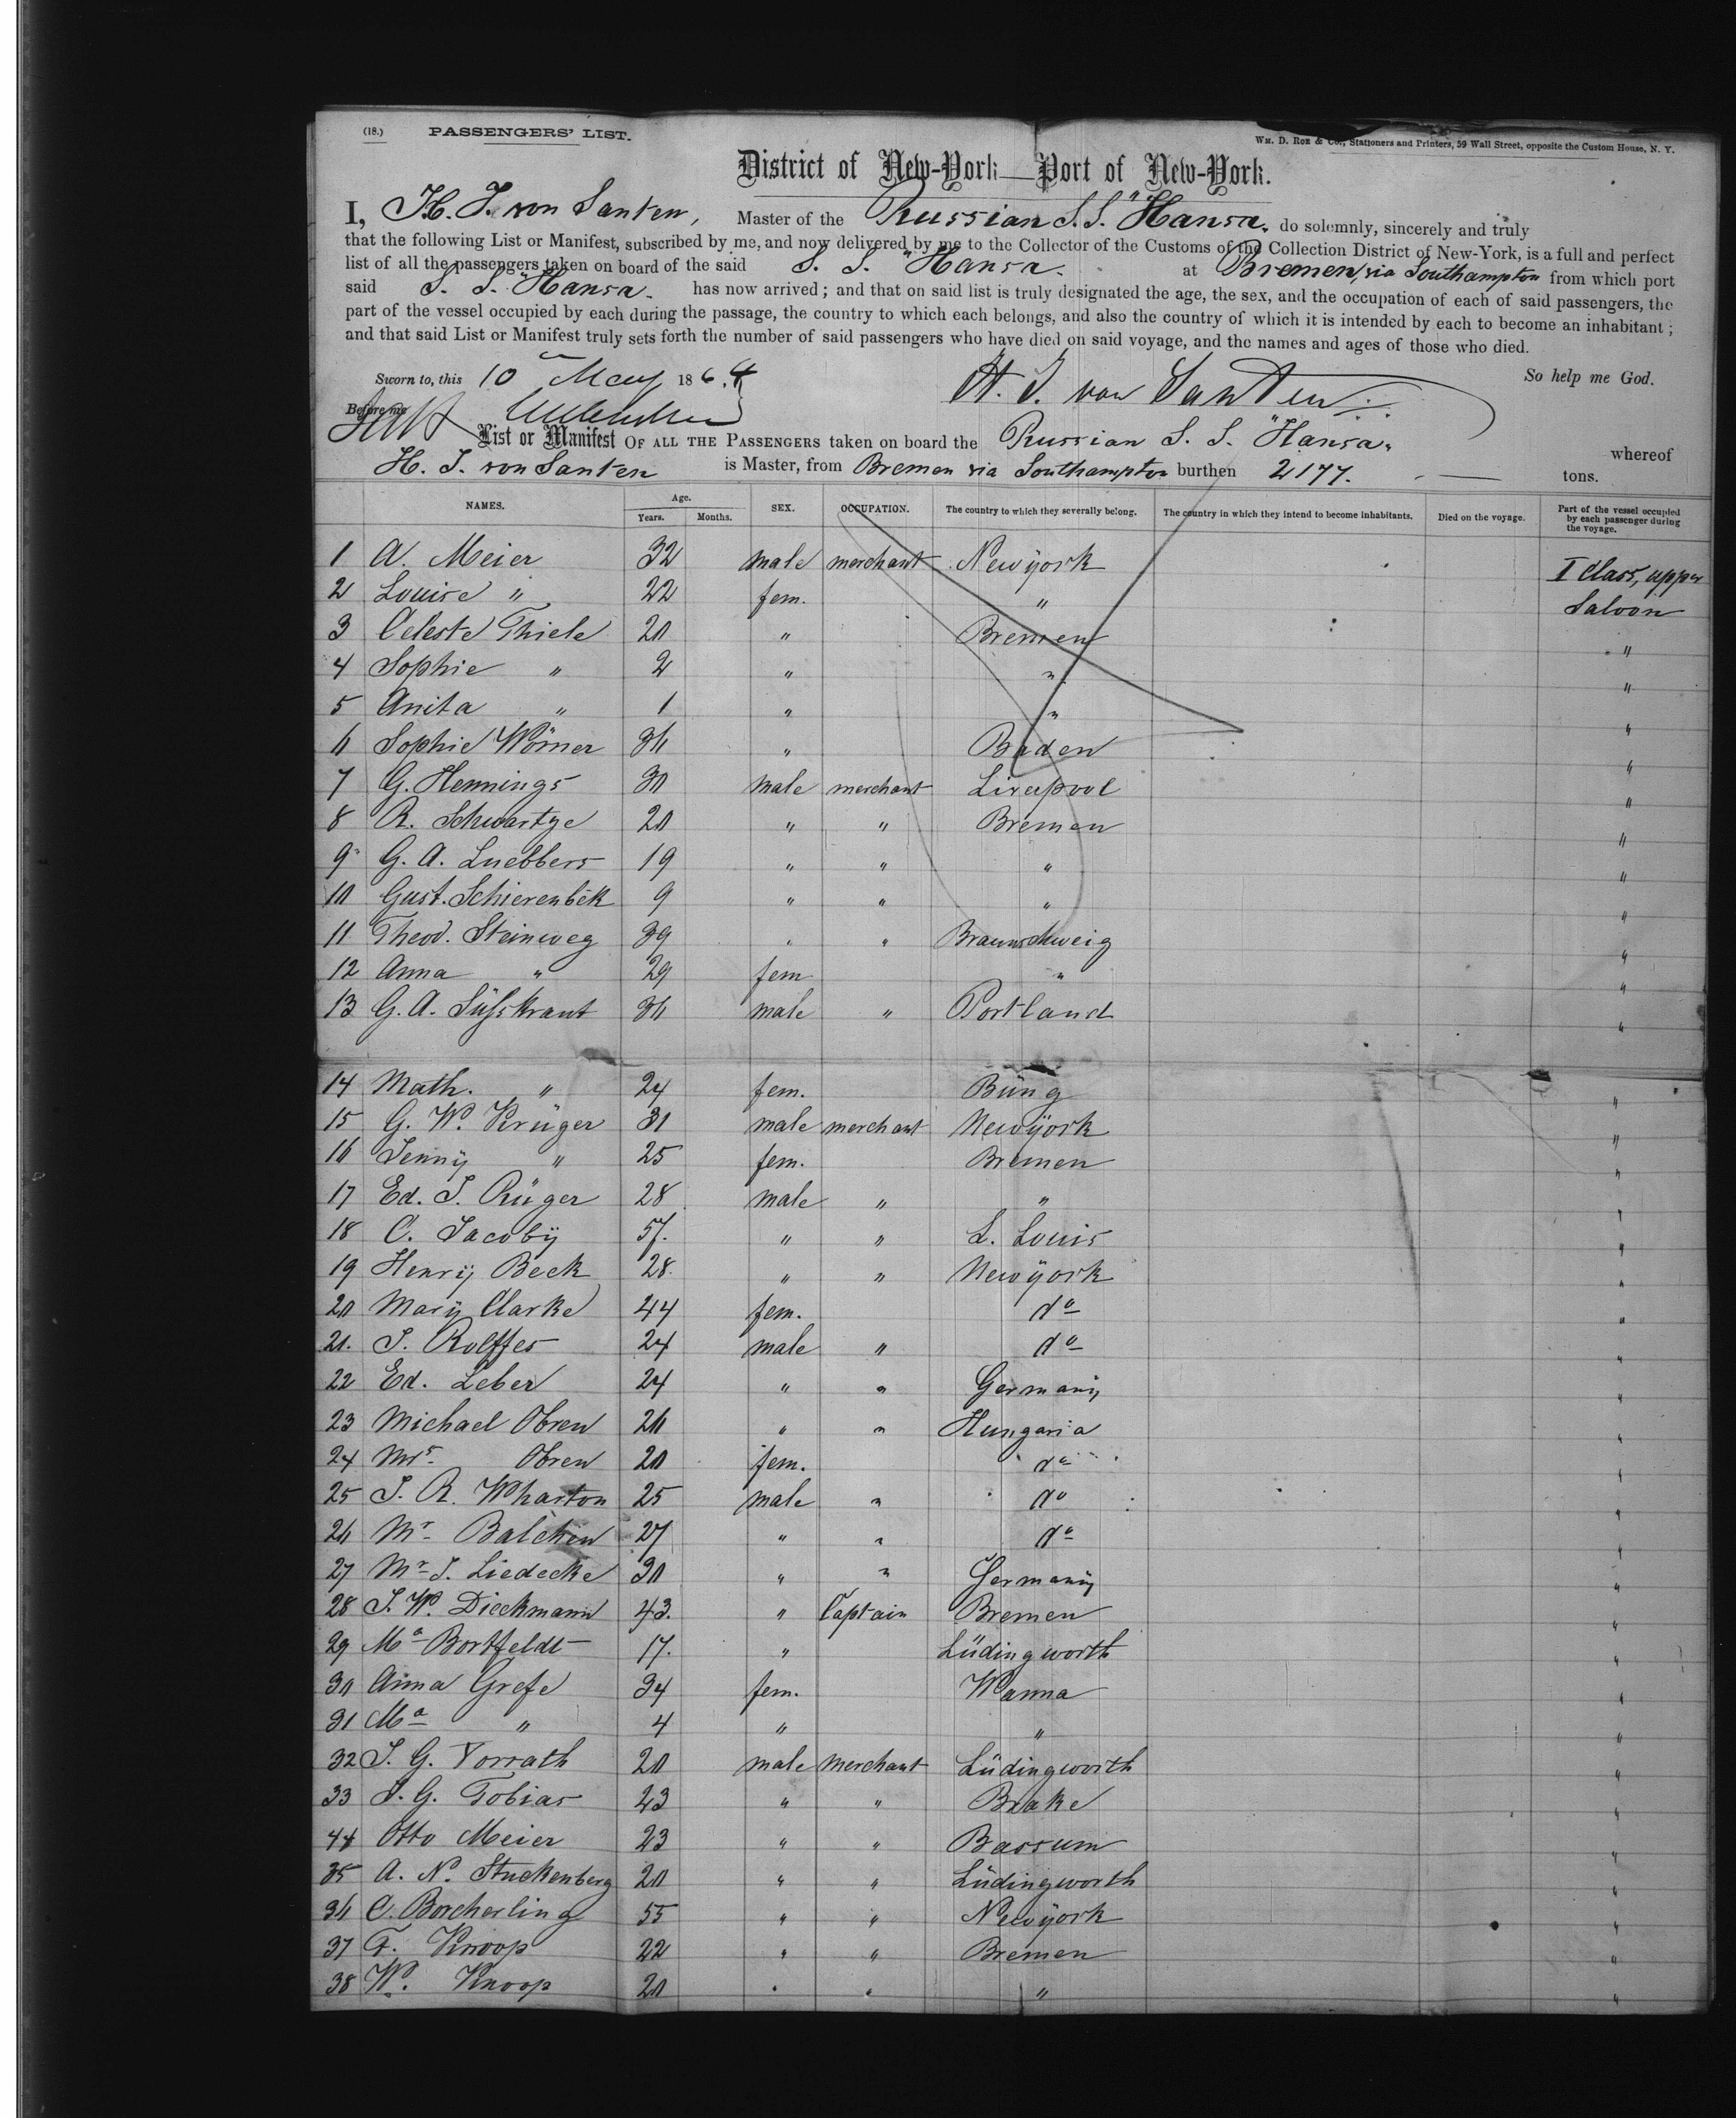 (18.) PASSENGERS' LIST.
Wm. D. Roe & Co., Stationers and Printers, 59 Wall Street, opposite the Custom House, N. Y.
District of New-York—Port of New-York.
I, H. J. von Santen, Master of the Russian S. S. "Hansa" do solemnly, sincerely and truly
that the following List or Manifest, subscribed by me, and now delivered by me to the Collector of the Customs of the Collection District of New-York, is a full and perfect
list of all the passengers taken on board of the said S. S. "Hansa. at Bremen, via Southampton from which port
said S. S. "Hansa. has now arrived; and that on said list is truly designated the age, the sex, and the occupation of each of said passengers, the
part of the vessel occupied by each during the passage, the country to which each belongs, and also the country of which it is intended by each to become an inhabitant;
and that said List or Manifest truly sets forth the number of said passengers who have died on said voyage, and the names and ages of those who died.
Sworn to, this 10 May 1864 H. J. von Santen So help me God.
Before me
List or Manifest OF ALL THE PASSENGERS taken on board the Russian S. S. "Hansa" whereof
H. J. von Santen is Master, from Bremen via Southampton burthen 2177. tons.
NAMES. Age. Years. Months. SEX. OCCUPATION. The country to which they severally belong. The country in which they intend to become inhabitants. Died on the voyage. Part of the vessel occupied by each passenger during the voyage.
1 A. Meier 32 male merchant Newÿork I Class, upper
2 Louise " 22 fem. " Saloon
3 Celeste Thiele 20 " Bremen "
4 Sophie " 2 " " "
5 Anita " 1 " " "
6 Sophie Wörner 36 " Baden "
7 G. Hennings 30 male merchant Liverpool "
8 R. Schwartze 20 " " Bremen "
9 G. A. Luebbers 19 " " " "
10 Gust. Schierenbek 9 " " " "
11 Theod. Steinweg 39 " " Braunschweig "
12 Anna " 29 fem " "
13 G. A. Süsskraut 36 male " Portland "
14 Math. " 24 fem. Büng "
15 G. W. Krüger 31 male merchant Newÿork "
16 Jennÿ " 25 fem. Bremen "
17 Ed. J. Rüger 28 male " " "
18 C. Jacobÿ 57. " " L. Louis "
19 Henrÿ Beck 28. " " Newÿork "
20 Marÿ Clarke 44 fem. do "
21. J. Rolffes 24 male " do "
22 Ed. Leber 24 " " Germanÿ "
23 Michael Obren 26 " " Hungaria "
24 Mrs. Obren 20 fem. do "
25 J. R. Wharton 25 male " do "
26 Mr. Balchen 27 " " do "
27 Mr. J. Liedecke 30 " " Germanÿ "
28 J. W. Dieckmann 43. " Captain Bremen "
29 Ma Bortfeldt 17. " Lüdingworth "
30 Anna Grefe 34 fem. Wanna "
31 Ma " 4 " " "
32 J. G. Vorrath 20 male merchant Lüdingworth "
33 J. G. Tobias 23 " " Brake "
44 Otto Meier 23 " " Bassum "
35 A. N. Stuckenberg 20 " " Lüdingworth "
36 C. Borcherling 55 " " Newÿork "
37 F. Knoop 22 " " Bremen "
38 W. Knoop 20 " " " "